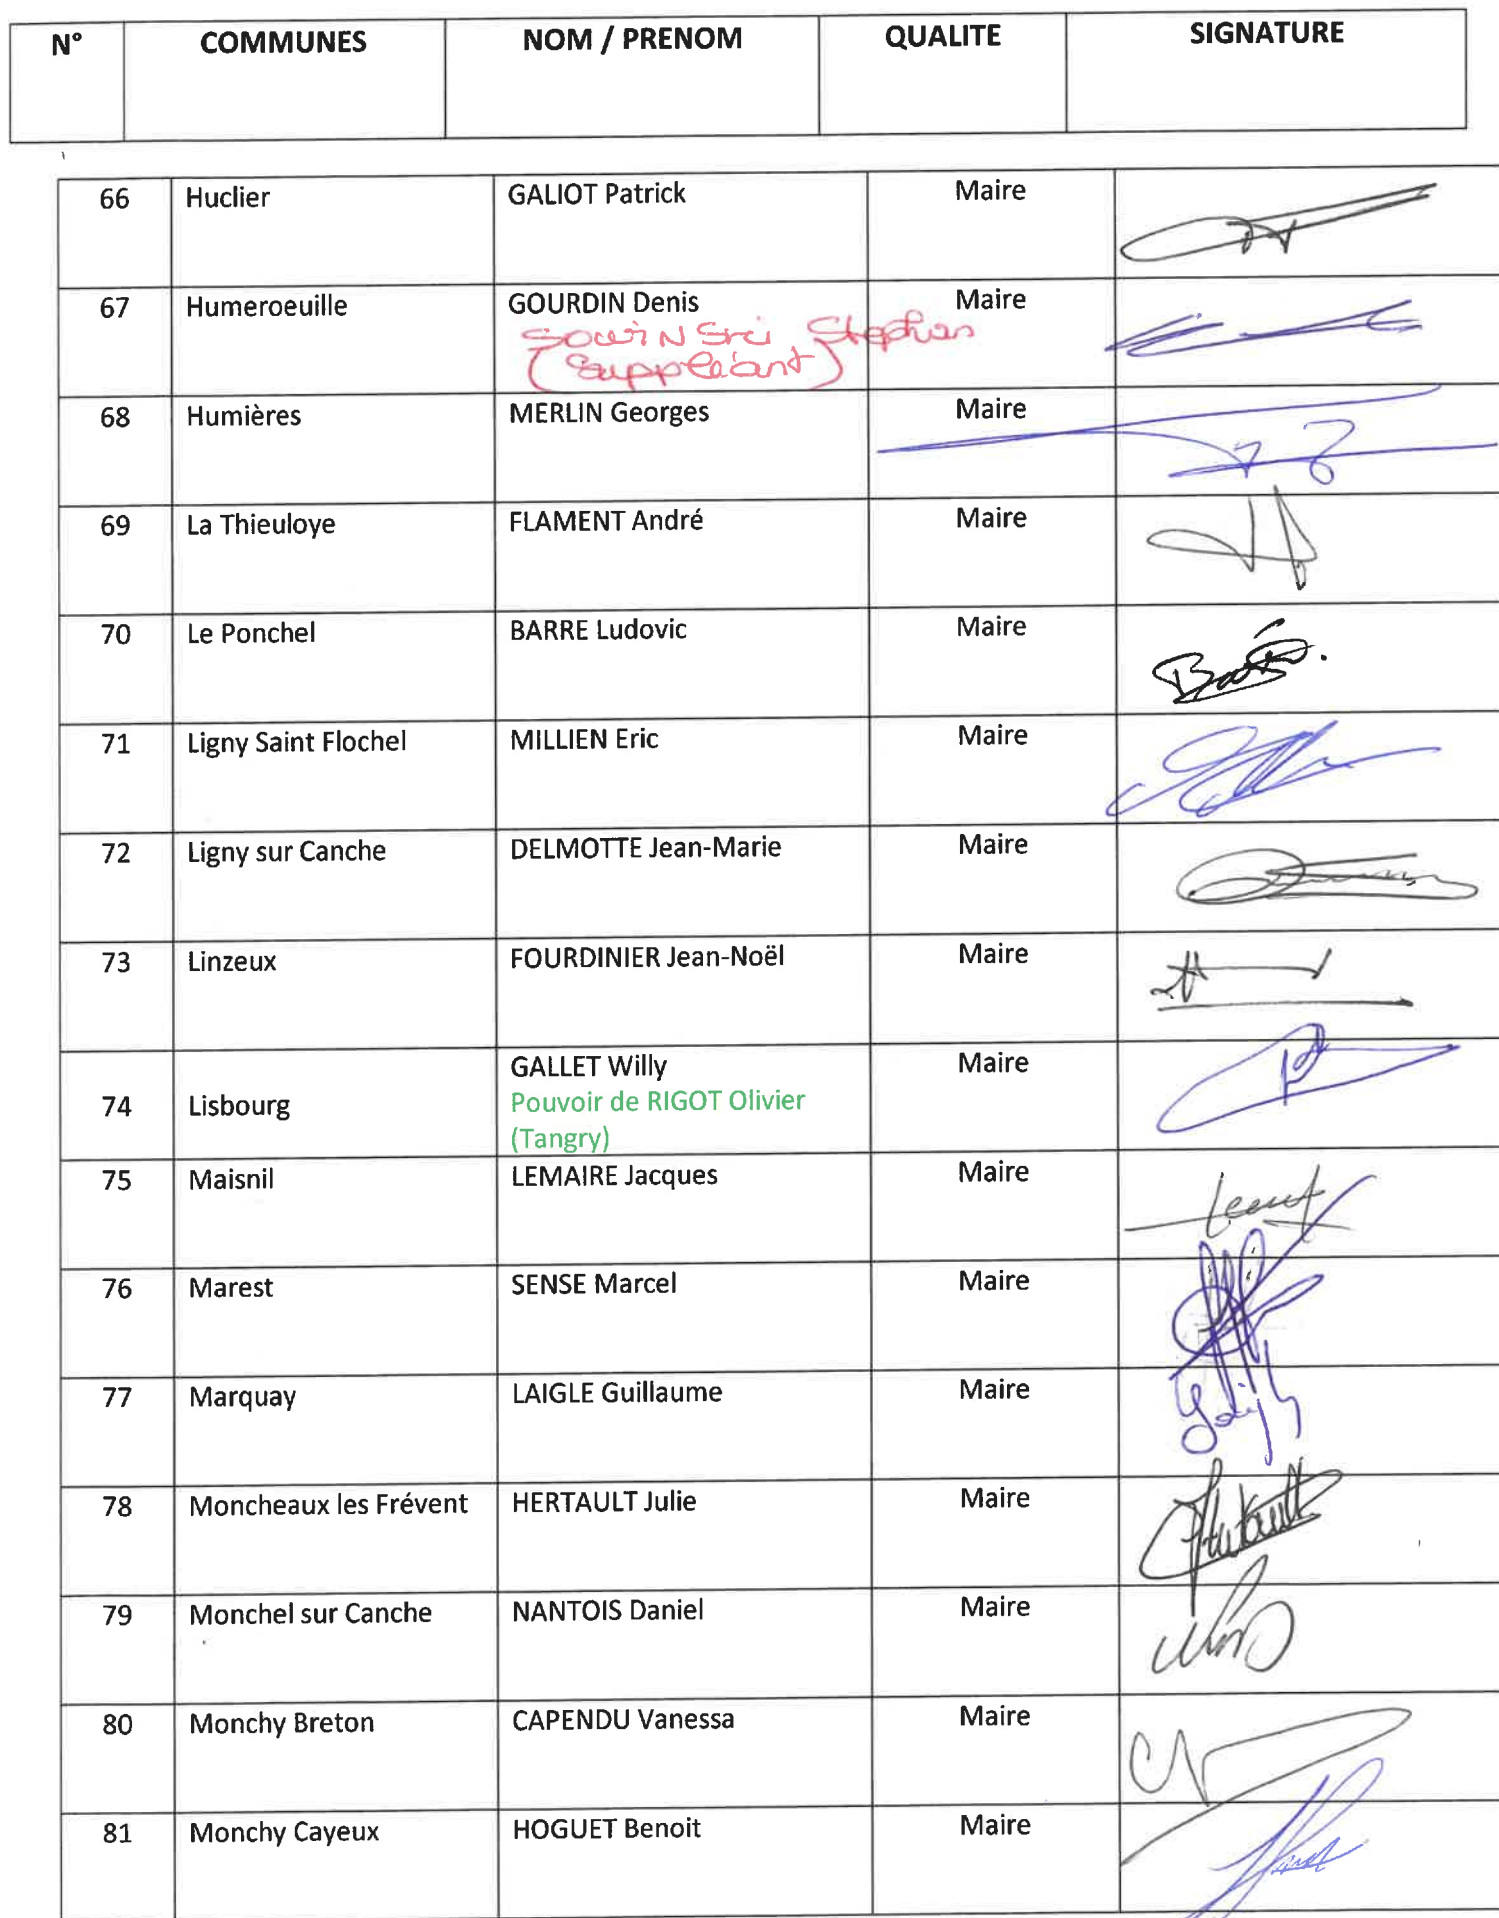 N° COMMUNES NOM / PRENOM QUALITE SIGNATURE
66 Huclier GALIOT Patrick Maire
67 Humeroeuille GOURDIN Denis Maire
Stephan
(Suppléant)
68 Humières MERLIN Georges Maire
69 La Thieuloye FLAMENT André Maire
70 Le Ponchel BARRE Ludovic Maire
71 Ligny Saint Flochel MILLIEN Eric Maire
72 Ligny sur Canche DELMOTTE Jean-Marie Maire
73 Linzeux FOURDINIER Jean-Noël Maire
74 Lisbourg GALLET Willy Maire
Pouvoir de RIGOT Olivier
(Tangry)
75 Maisnil LEMAIRE Jacques Maire
76 Marest SENSE Marcel Maire
77 Marquay LAIGLE Guillaume Maire
78 Moncheaux les Frévent HERTAULT Julie Maire
79 Monchel sur Canche NANTOIS Daniel Maire
80 Monchy Breton CAPENDU Vanessa Maire
81 Monchy Cayeux HOGUET Benoit Maire